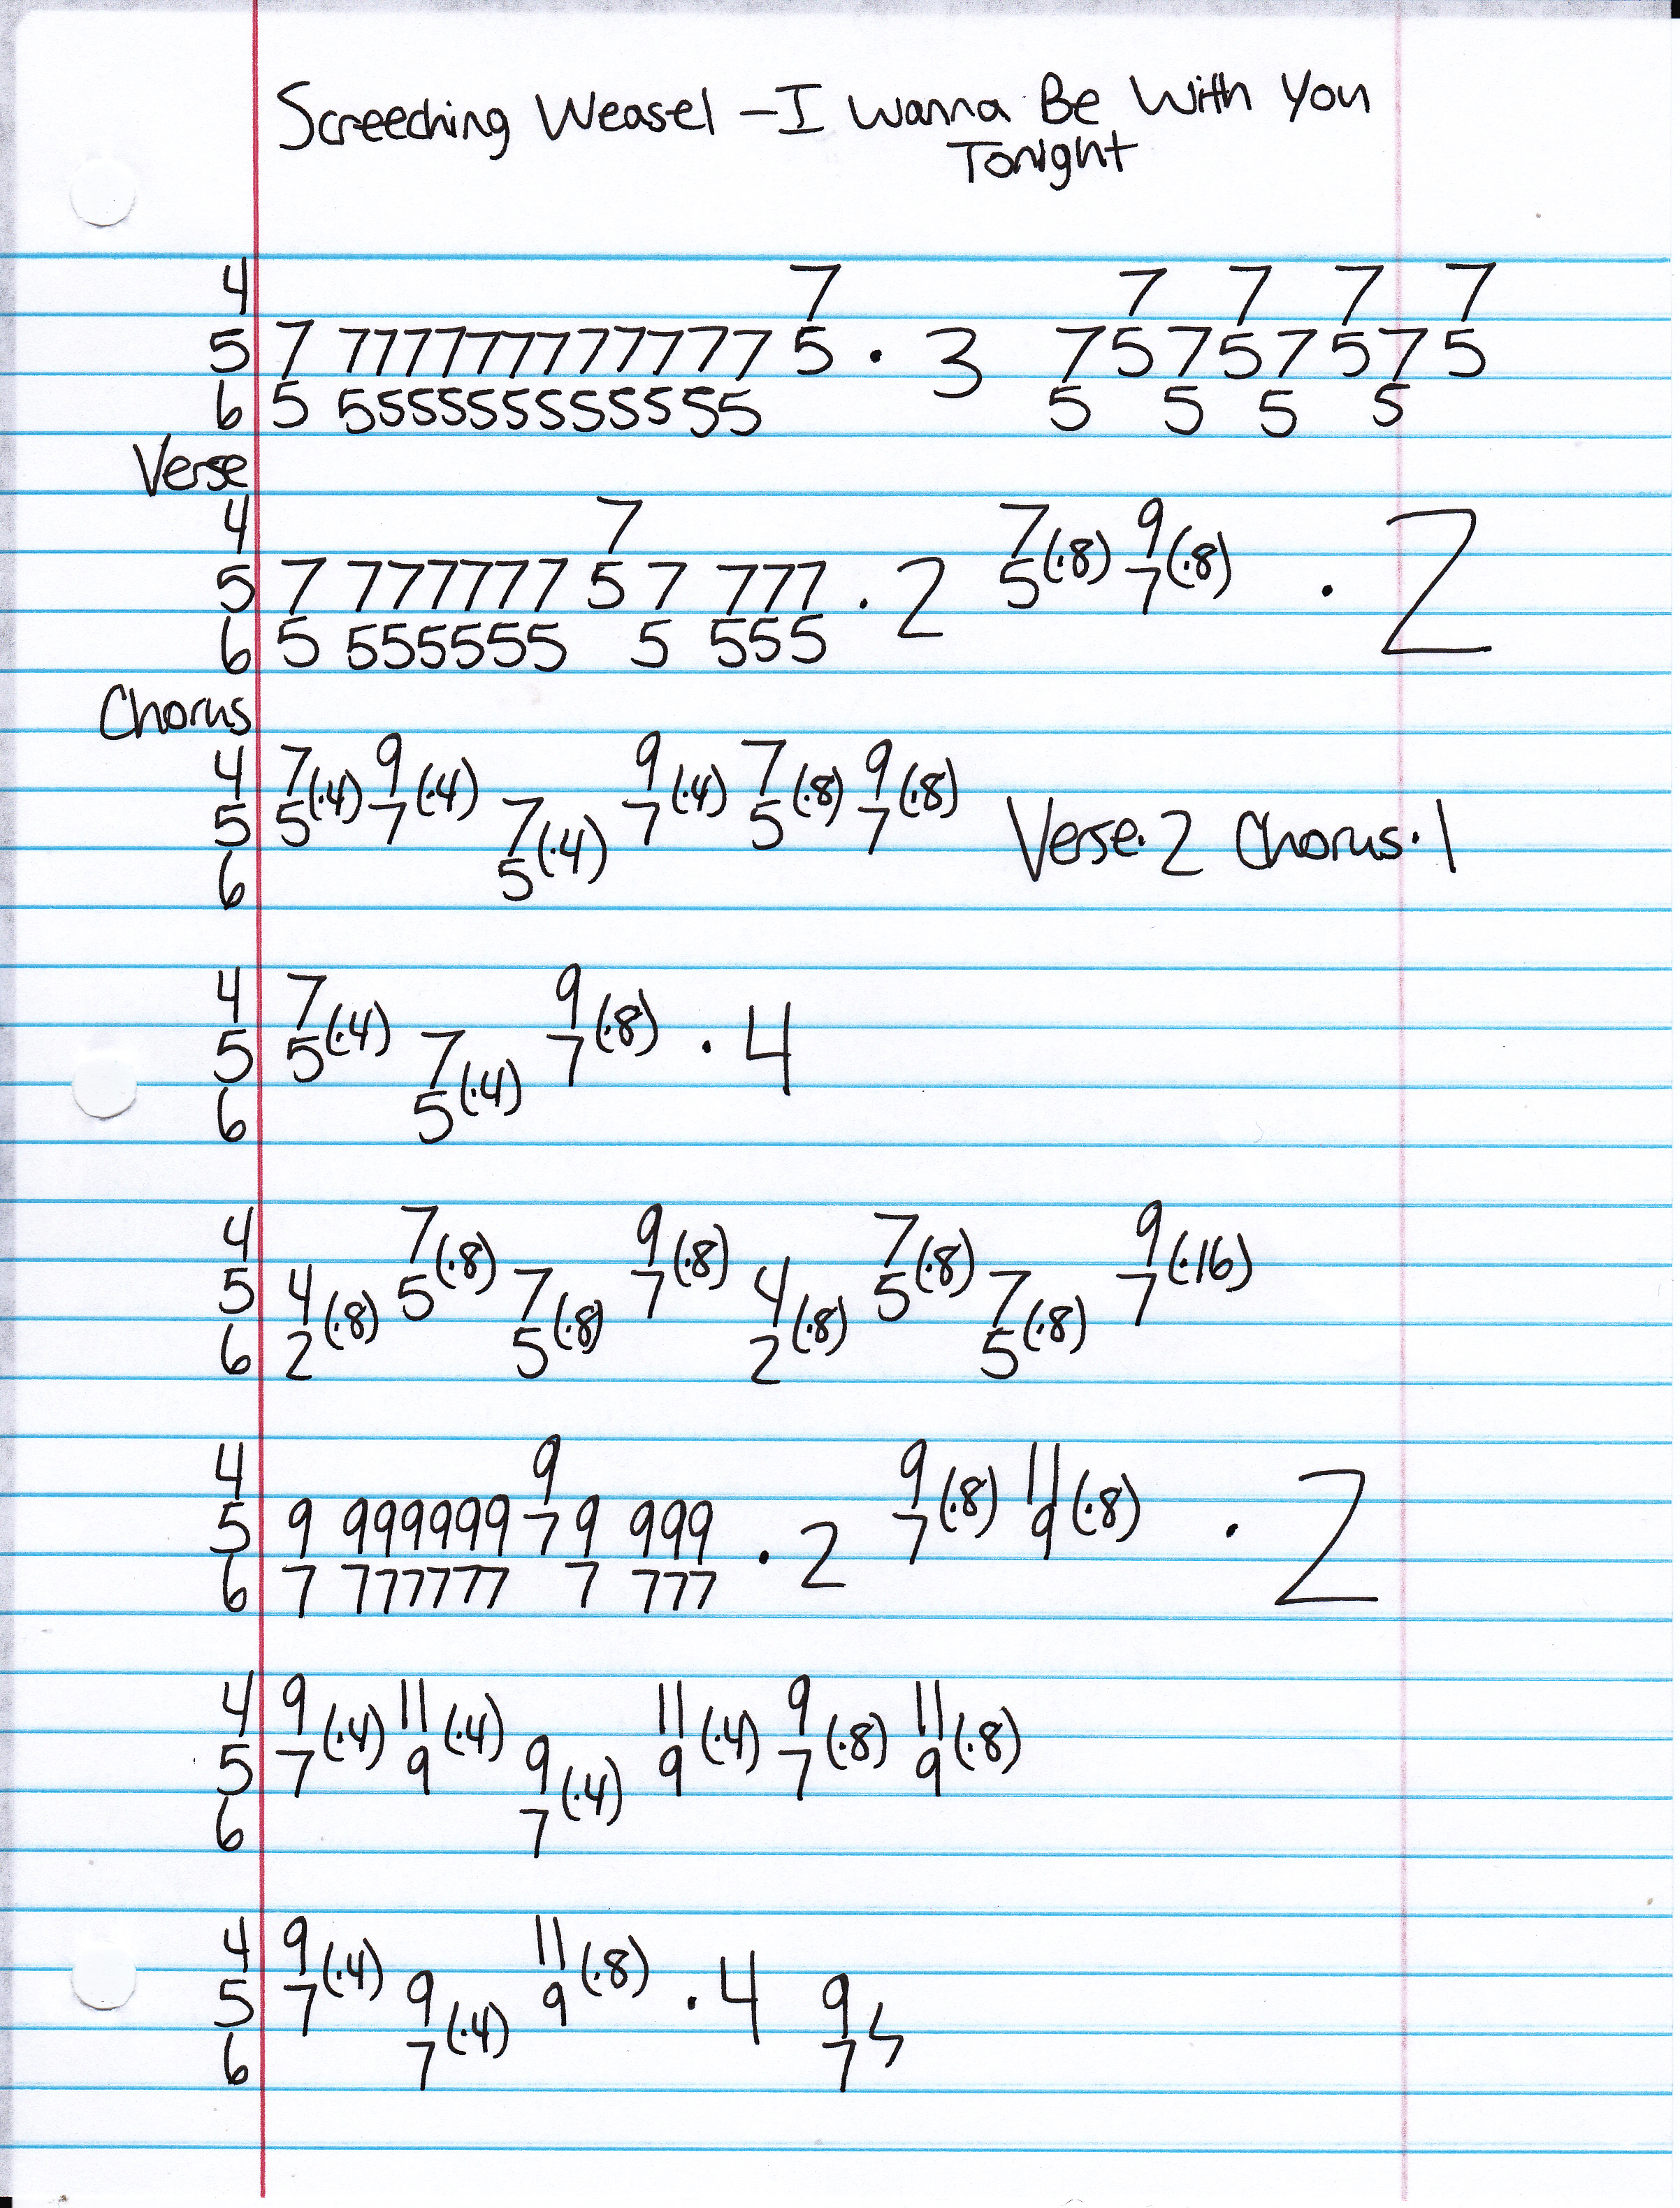 Screeching Weasel - I Wanna Be With You
Tonight
4 7 7 7 7 7
5 7 777777777777 5 · 3 7 5 7 5 7 5 7 5
6 5 555555555555 5 5 5 5
Verse
4 7 7(·8) 9(·8)
5 7 777777 5 7 777 · 2 5 7 · 2
6 5 555555 5 555
Chorus
4 7(·4) 9(·4) 9(·4) 7(·8) 9(·8)
5 5 7 7(·4) 7 5 7 Verse·2 Chorus·1
6 5
4 7(·4) 9(·8)
5 5 7(·4) 7 · 4
6 5
4 7(·8) 9(·8) 7(·8) 9(·16)
5 4(·8) 5 7(·8) 7 4(·8) 5 7(·8) 7
6 2 5 2 5
4 9 9(·8) 11(·8)
5 9 999999 7 9 999 · 2 7 9 · 2
6 7 777777 7 777
4 9(·4) 11(·4) 11(·4) 9(·8) 11(·8)
5 7 9 9(·4) 9 7 9
6 7
4 9(·4) 11(·8)
5 7 9(·4) 9 · 4 9
6 7 7